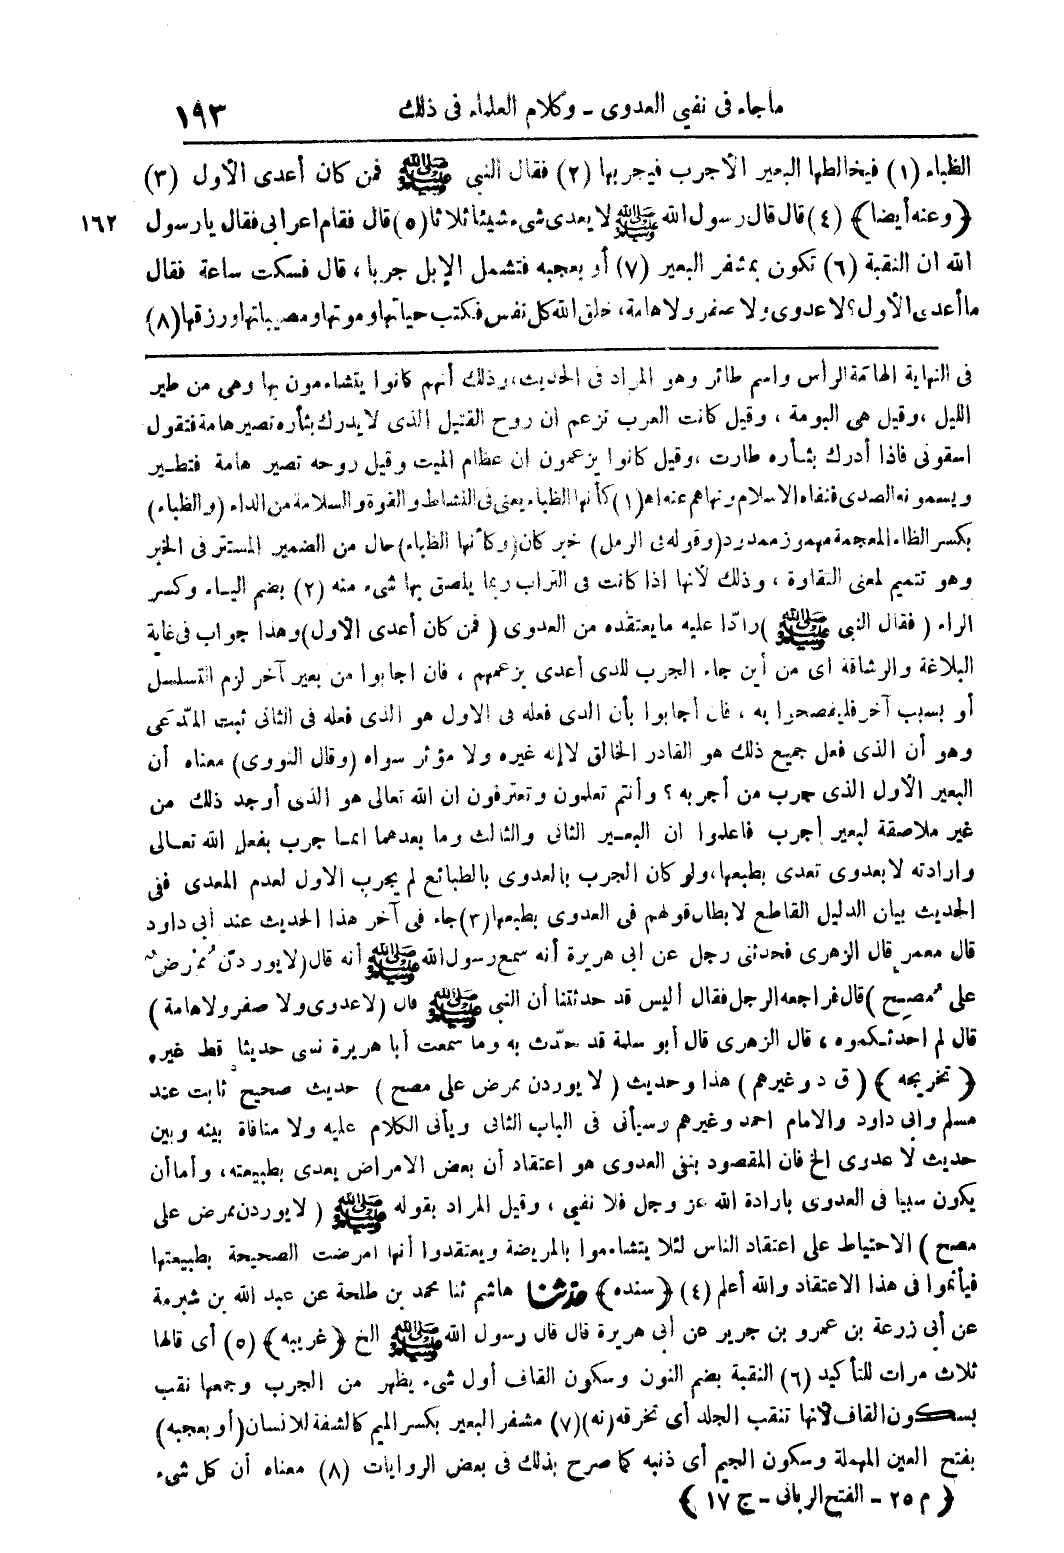 ماجاء فى نفي العدوى ـ وكلام العلماء فى ذلك ١٩٣
الظباء (١) فيخالطها البعير الأجرب فيجربها (٢) فقال النبى ﷺ فمن كان أعدى الأول (٣)
١٦٢ ﴿وعنه أيضا﴾ (٤) قال قال رسول الله ﷺ لا يعدى شىء شيئا ثلاثا (٥) قال فقام اعرابى فقال يارسول
الله ان النقبة (٦) تكون بمشفر البعير (٧) أو بعجبه فتشمل الإبل جربا، قال فسكت ساعة فقال
ما أعدى الأول؟ لا عدوى ولا صفر ولا هامة، خلق الله كل نفس فكتب حياتها وموتها ومصيباتها ورزقها (٨)
فى النهاية الهامّة الرأس واسم طائر وهو المراد فى الحديث، وذلك أنهم كانوا يتشاءمون بها وهى من طير
الليل، وقيل هى البومة، وقيل كانت العرب تزعم ان روح القتيل الذى لا يدرك بثأره تصير هامة فتقول
اسقونى فاذا أدرك بثأره طارت، وقيل كانوا يزعمون ان عظام الميت وقيل روحه تصير هامة فتطير
ويسمونه الصدى فنفاه الاسلام ونهاهم عنه اه (١) كأنها الظباء يعنى فى النشاط والقوة والسلامة من الداء (والظباء)
بكسر الظاء المعجمة مهموز ممدود (وقوله فى الرمل) خبر كان (وكأنها الظباء) حال من الضمير المستتر فى الخبر
وهو تتميم لمعنى النقاوة، وذلك لأنها اذا كانت فى التراب ربما يلصق بها شىء منه (٢) بضم الياء وكسر
الراء (فقال النبى ﷺ) رادّا عليه ما يعتقده من العدوى (فمن كان أعدى الاول) وهذا جواب فى غاية
البلاغة والرشاقة اى من أين جاء الجرب للذى أعدى بزعمهم، فان اجابوا من بعير آخر لزم التسلسل
أو بسبب آخر فليفصحوا به، فان أجابوا بأن الذى فعله فى الاول هو الذى فعله فى الثانى ثبت المدّعى
وهو أن الذى فعل جميع ذلك هو القادر الخالق لا إله غيره ولا مؤثر سواه (وقال النووى) معناه أن
البعير الأول الذى جرب من أجربه؟ وأنتم تعلمون وتعترفون ان الله تعالى هو الذى أوجد ذلك من
غير ملاصقة لبعير أجرب فاعلموا ان البعير الثانى والثالث وما بعدهما انما جرب بفعل الله تعالى
وارادته لا بعدوى تعدى بطبعها، ولو كان الجرب بالعدوى بالطبائع لم يجرب الاول لعدم المعدى ففى
الحديث بيان الدليل القاطع لابطال قولهم فى العدوى بطبعها (٣) جاء فى آخر هذا الحديث عند أبى داود
قال معمر قال الزهرى فحدثنى رجل عن ابى هريرة أنه سمع رسول الله ﷺ أنه قال (لا يوردنّ مُمْرِض
على مُصِحّ) قال فراجعه الرجل فقال أليس قد حدثتنا أن النبى ﷺ قال (لا عدوى ولا صفر ولا هامة)
قال لم احدثكموه، قال الزهرى قال أبو سلمة قد حدّث به وما سمعت أبا هريرة نسى حديثا قط غيره
﴿تخريجه﴾ (ق د وغيرهم) هذا وحديث (لا يوردن ممرض على مصح) حديث صحيح ثابت عند
مسلم وابى داود والامام احمد وغيرهم وسيأتى فى الباب الثانى ويأتى الكلام عليه ولا منافاة بينه وبين
حديث لا عدوى الخ فان المقصود بنفى العدوى هو اعتقاد أن بعض الامراض يعدى بطبيعته، وأما أن
يكون سببا فى العدوى بارادة الله عز وجل فلا نفي، وقيل المراد بقوله ﷺ (لا يوردن ممرض على
مصح) الاحتياط على اعتقاد الناس لئلا يتشاءموا بالمريضة ويعتقدوا أنها امرضت الصحيحة بطبيعتها
فيأثموا فى هذا الاعتقاد والله أعلم (٤) ﴿سنده﴾ حدثنا هاشم ثنا محمد بن طلحة عن عبد الله بن شبرمة
عن أبى زرعة بن عمرو بن جرير عن أبى هريرة قال قال رسول الله ﷺ الخ ﴿غريبه﴾ (٥) أى قالها
ثلاث مرات للتأكيد (٦) النقبة بضم النون وسكون القاف أول شىء يظهر من الجرب وجمعها نقب
بسكون القاف لأنها تنقب الجلد أى تخرقه (نه) (٧) مشفر البعير بكسر الميم كالشفة للانسان (أو بعجبه)
بفتح العين المهملة وسكون الجيم أى ذنبه كما صرح بذلك فى بعض الروايات (٨) معناه أن كل شىء
﴿م ٢٥ ـ الفتح الربانى ـ ج ١٧﴾